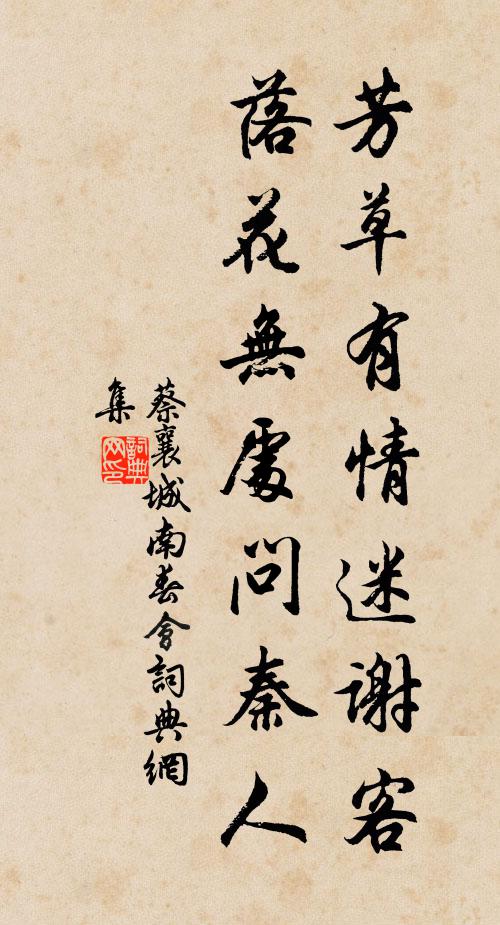 芳草有情迷謝客
落花無處問秦人
蔡襄城南春會詞典網
集
詞典
网印